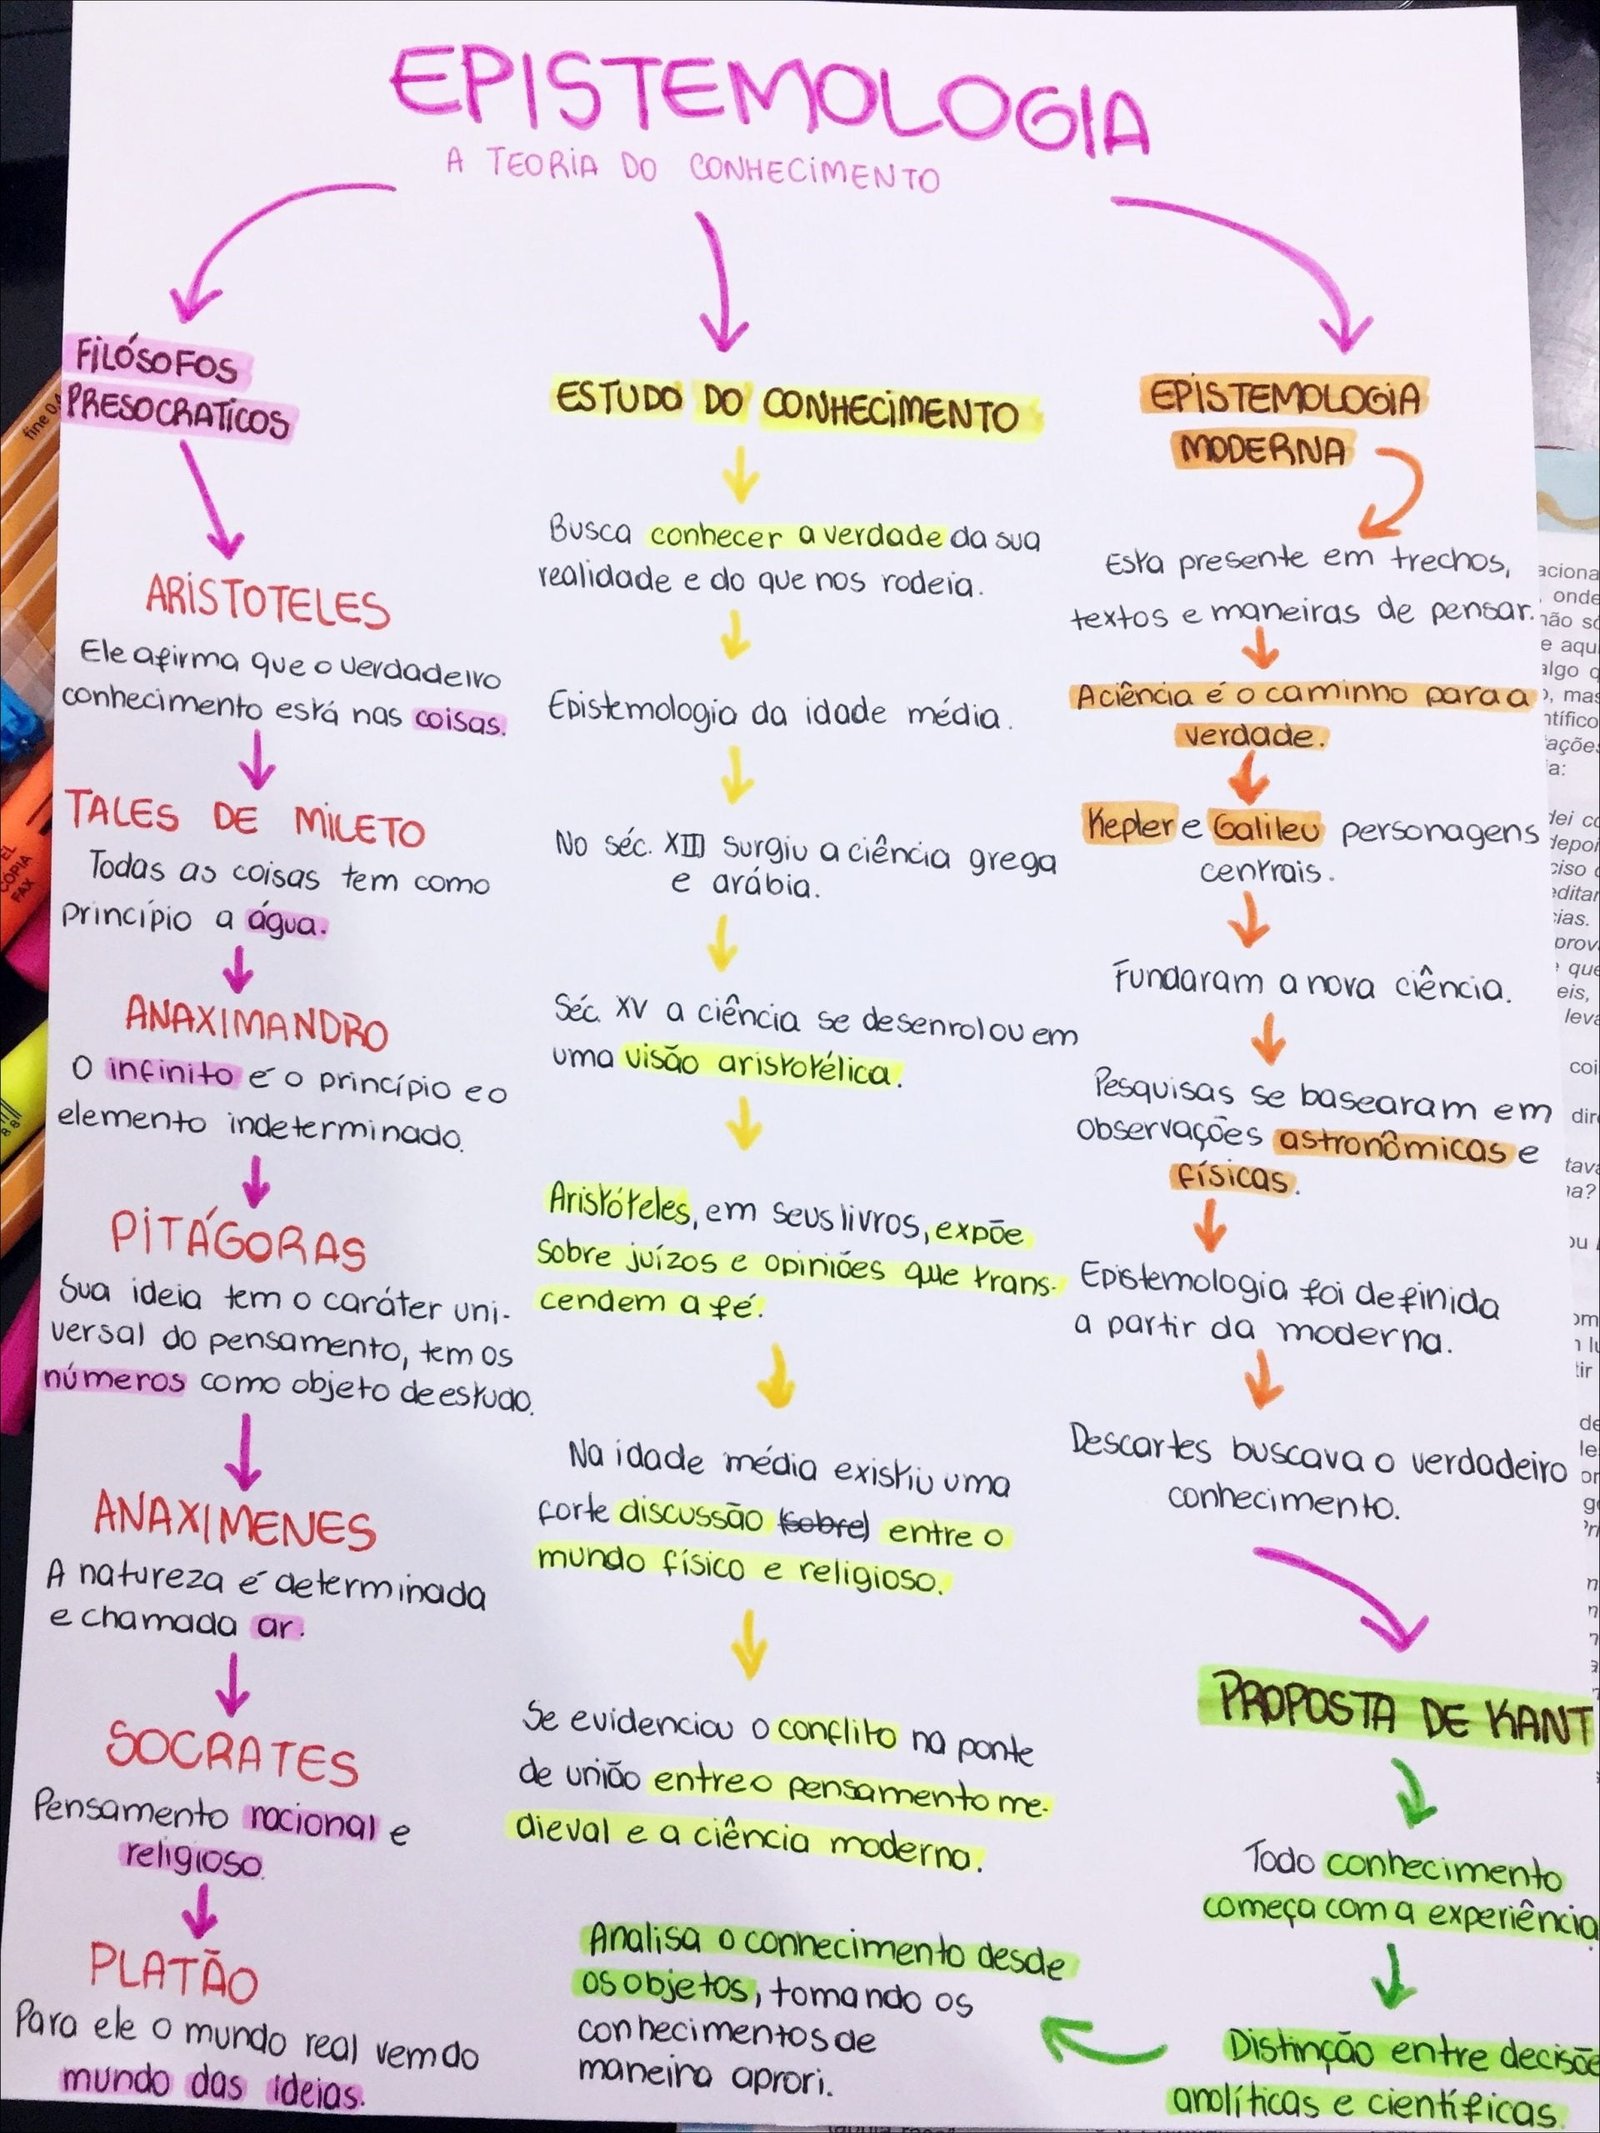 EPISTEMOLOGIA
A TEORIA DO CONHECIMENTO
FILÓSOFOS
PRESOCRATICOS
ARISTOTELES
Ele afirma que o verdadeiro
conhecimento está nas coisas.
TALES DE MILETO
Todas as coisas tem como
princípio a água.
ANAXIMANDRO
O infinito é o princípio e o
elemento indeterminado.
PITÁGORAS
Sua ideia tem o caráter uni-
versal do pensamento, tem os
números como objeto de estudo.
ANAXIMENES
A natureza é determinada
e chamada ar.
SOCRATES
Pensamento racional e
religioso.
PLATÃO
Para ele o mundo real vem do
mundo das ideias.
ESTUDO DO CONHECIMENTO
Busca conhecer a verdade da sua
realidade e do que nos rodeia.
Epistemologia da idade média.
No séc. XIII surgiu a ciência grega
e arábia.
Séc. XV a ciência se desenrolou em
uma visão aristotélica.
Aristóteles, em seus livros, expõe
sobre juízos e opiniões que trans-
cendem a fé.
Na idade média existiu uma
forte discussão (sobre) entre o
mundo físico e religioso.
Se evidenciou o conflito na ponte
de união entre o pensamento me-
dieval e a ciência moderna.
EPISTEMOLOGIA
MODERNA
Esta presente em trechos,
textos e maneiras de pensar.
A ciência é o caminho para a
verdade.
Kepler e Galileu personagens
centrais.
Fundaram a nova ciência.
Pesquisas se basearam em
observações astronômicas e
físicas.
Epistemologia foi definida
a partir da moderna.
Descartes buscava o verdadeiro
conhecimento.
PROPOSTA DE KANT
Todo conhecimento
começa com a experiência
Distinção entre decisõe
analíticas e científicas.
Analisa o conhecimento desde
os objetos, tomando os
conhecimentos de
maneira aprori.
fine 0.4
COPIA
FAX